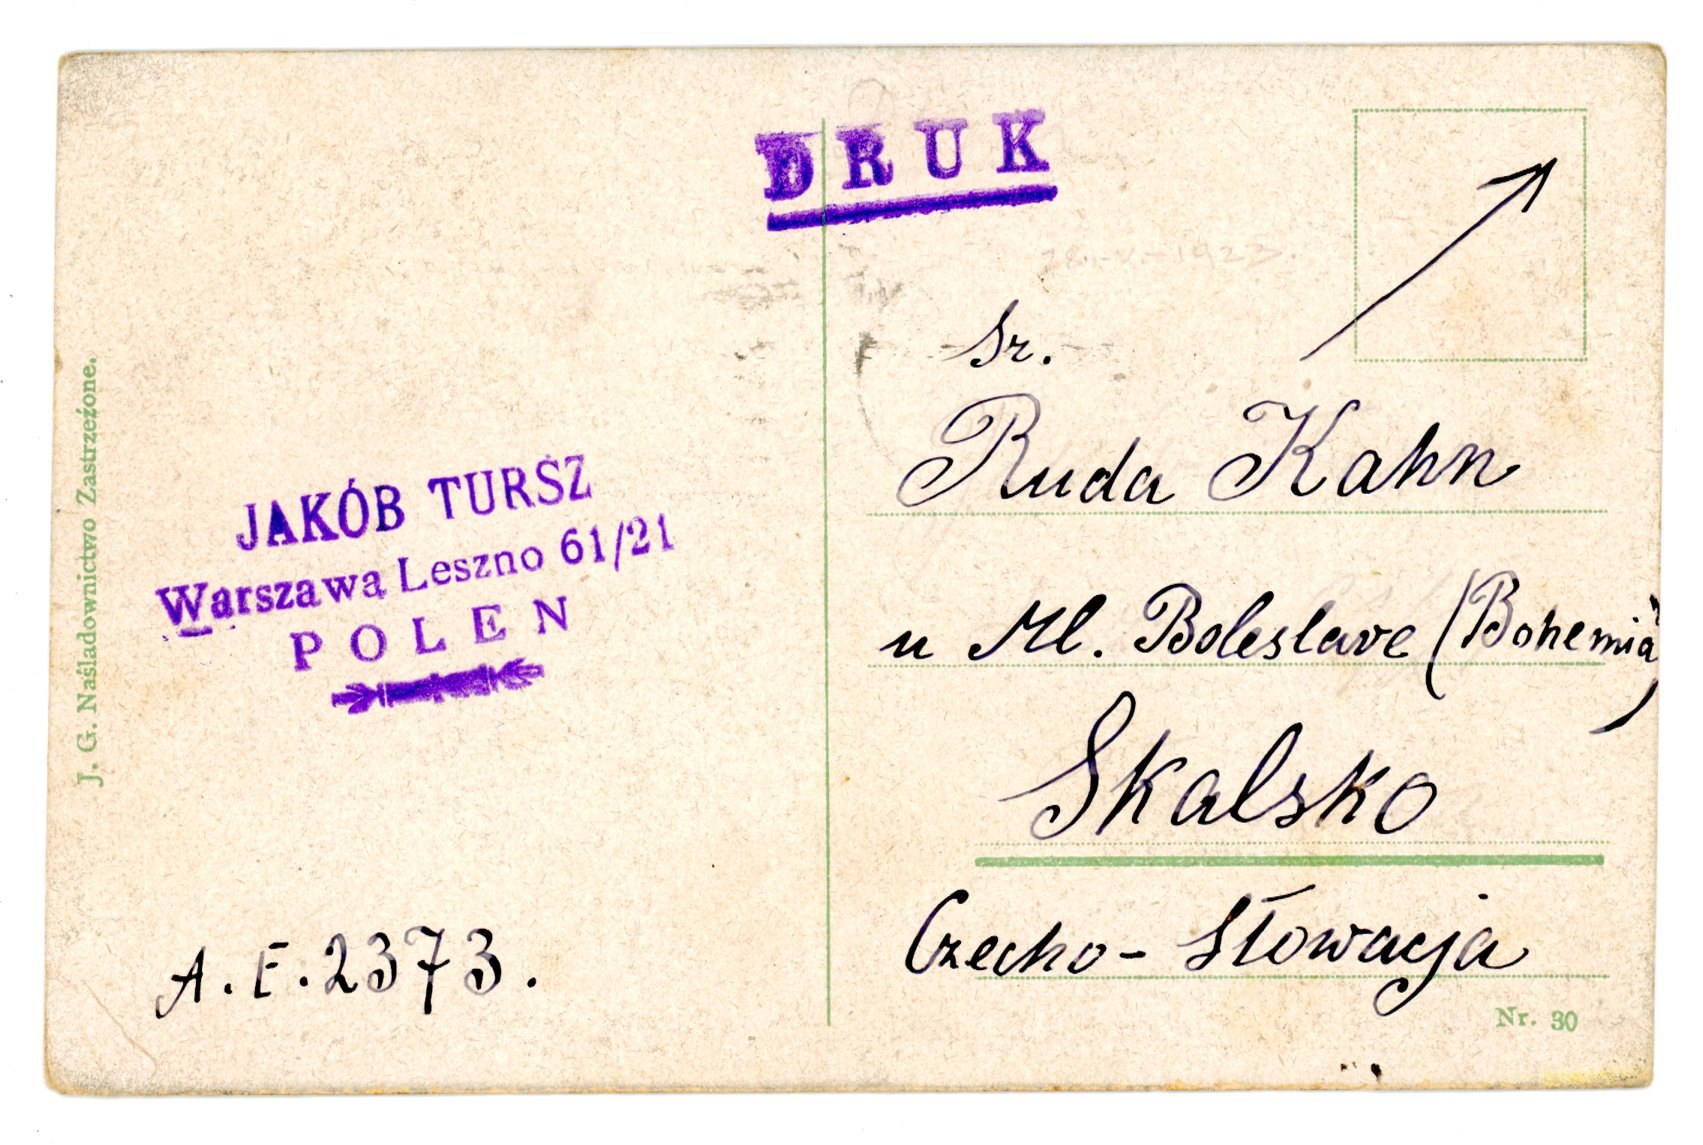 DRUK
28.-V.-1923.
Sr.
Ruda Kahn
u Ml. Boleslave (Bohemia)
Skalsko
Czecho-Słowacja
Nr. 30
JAKÓB TURSZ
Warszawa Leszno 61/21
POLEN
A.E.2373.
J. G. Naśladownictwo Zastrzeżone.